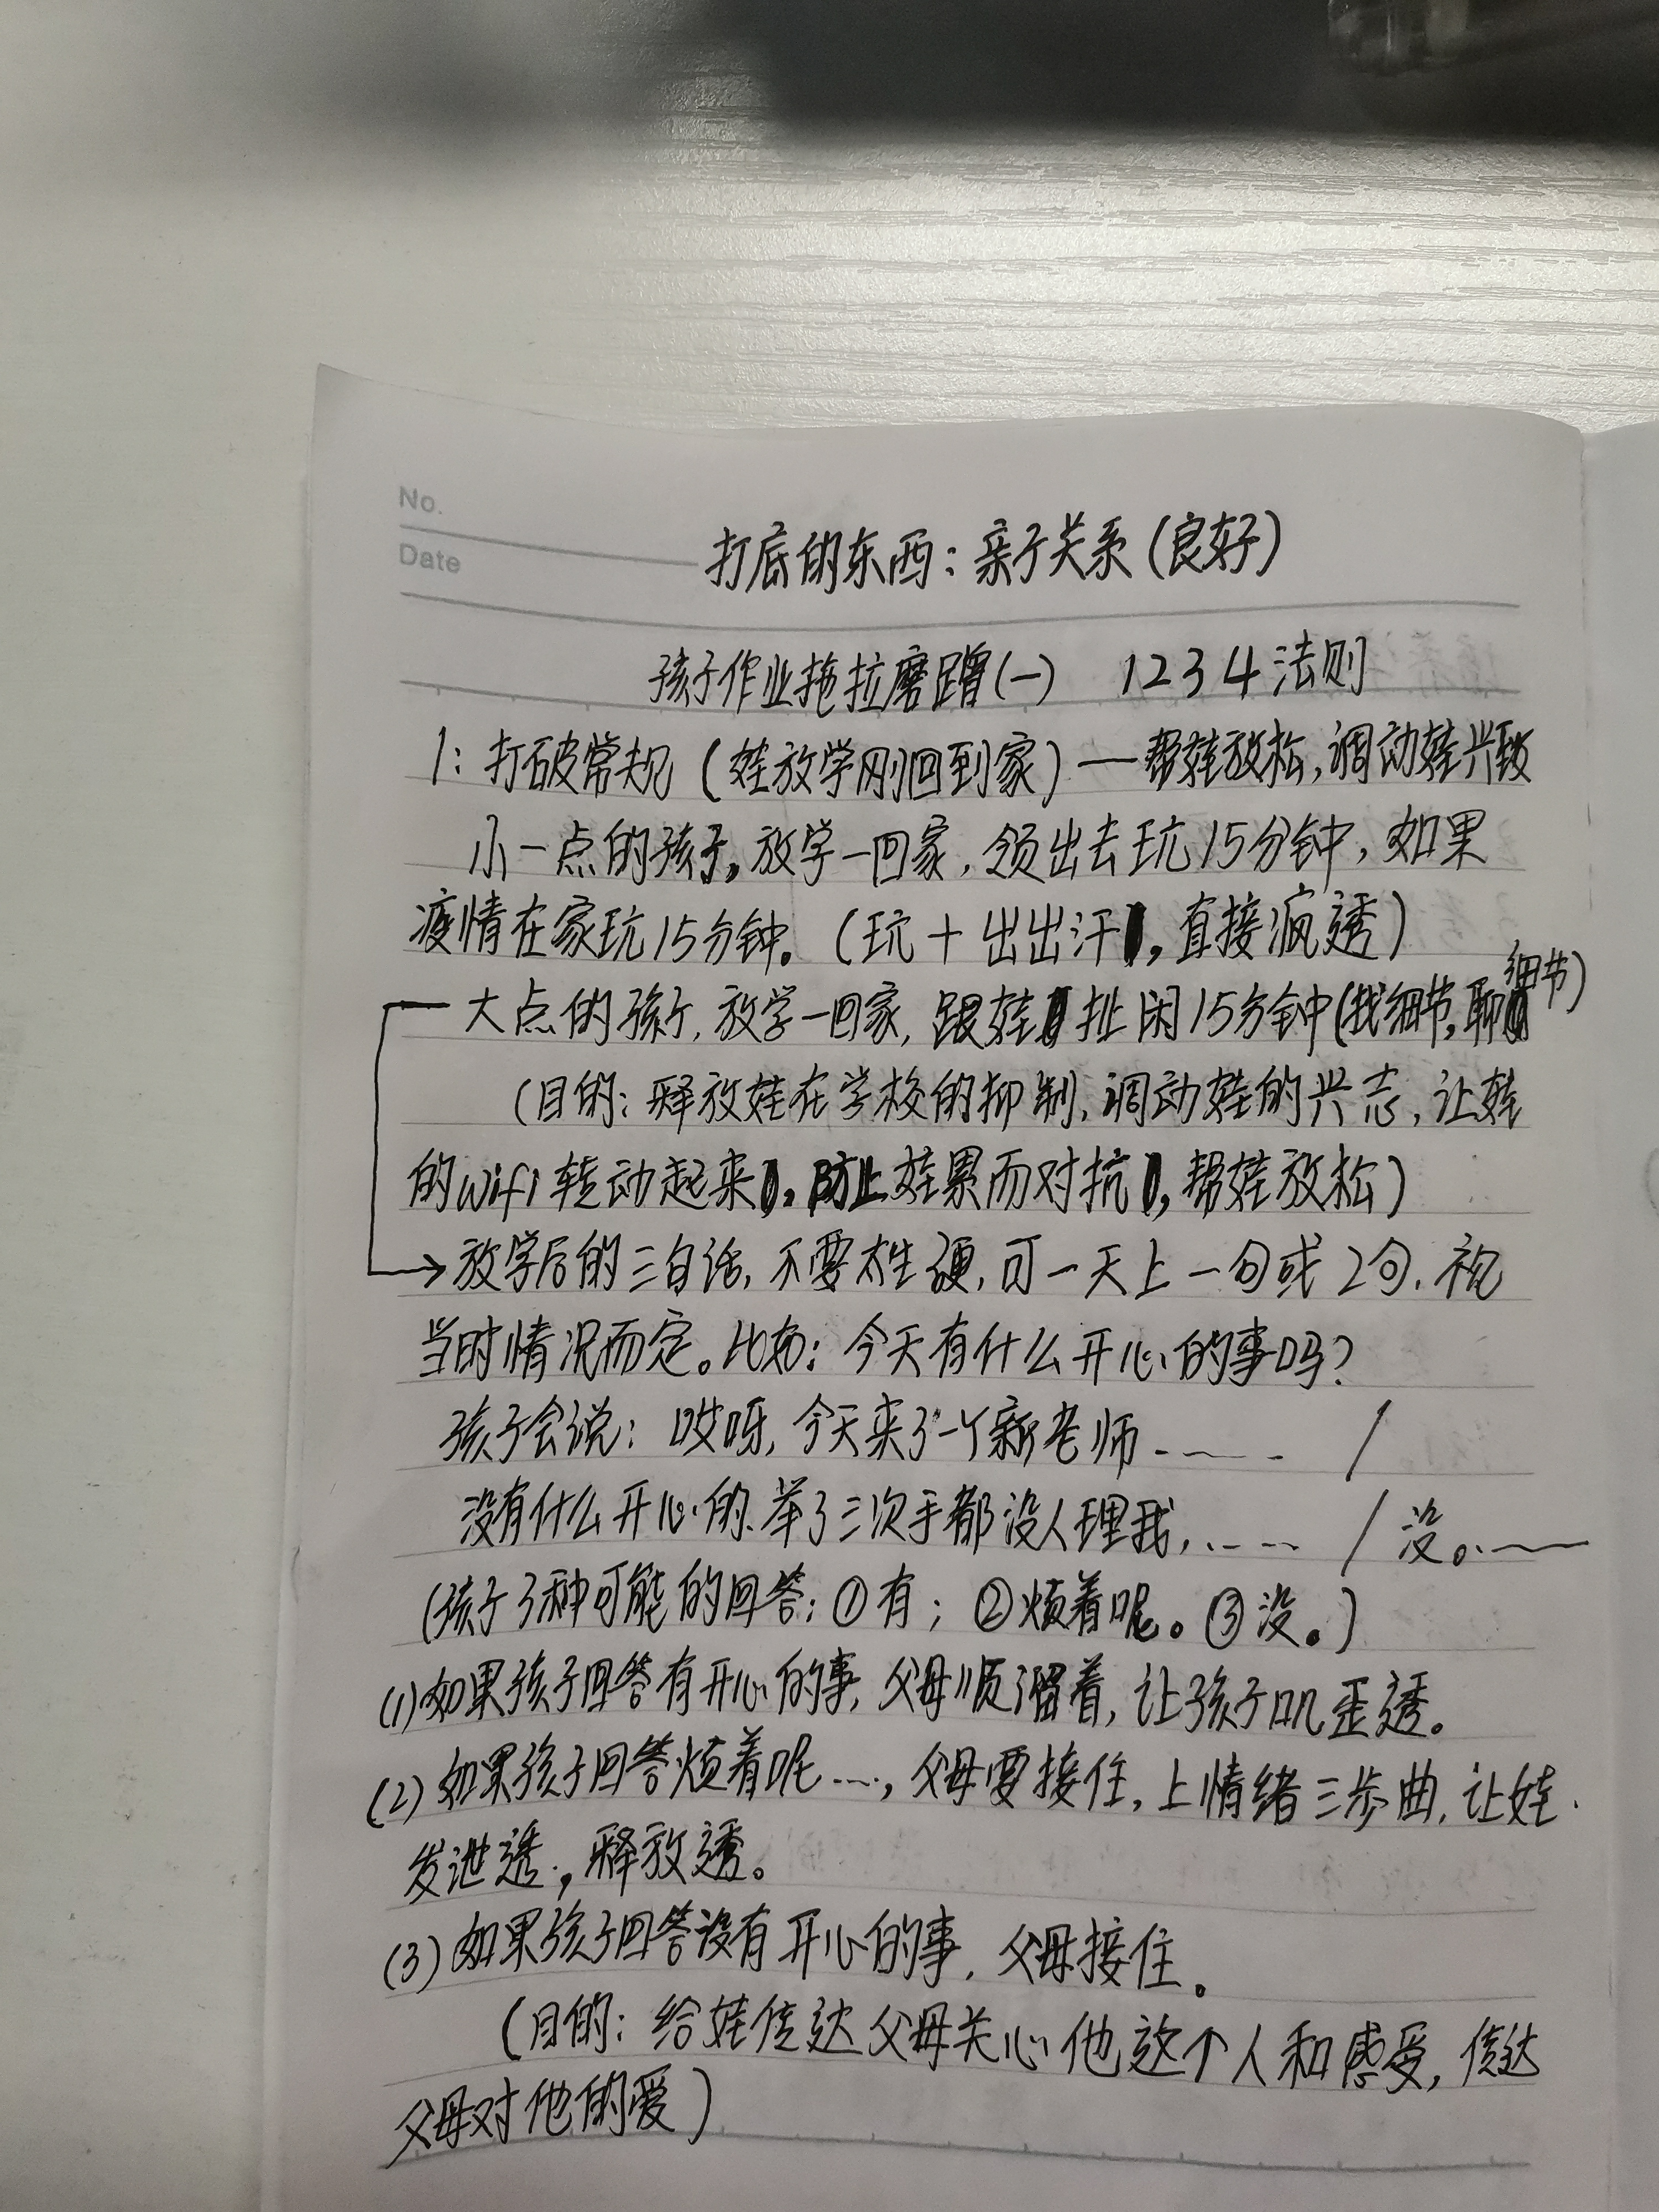 No.
Date
打底的东西：亲子关系(良好)
孩子作业拖拉磨蹭(一) 1234法则
1：打破常规(娃放学刚回到家)—帮娃放松,调动娃兴致
小一点的孩子,放学一回家,领出去玩15分钟,如果
疫情在家玩15分钟。(玩+出出汗,直接疯透)
大点的孩子,放学一回家,跟娃扯闲15分钟(找细节,聊细节)
(目的:释放娃在学校的抑制,调动娃的兴志,让娃
的wifi转动起来,防止娃累而对抗,帮娃放松)
→放学后的三句话,不要太生硬,可一天上一句或2句.视
当时情况而定。比如:今天有什么开心的事吗?
孩子会说:哎呀,今天来了一个新老师...... /
没有什么开心的.举了三次手都没人理我,...... / 没。......
(孩子3种可能的回答:①有;②烦着呢。③没。)
(1)如果孩子回答有开心的事,父母顺溜着,让孩子叽歪透。
(2)如果孩子回答烦着呢...,父母要接住,上情绪三步曲,让娃
发泄透,释放透。
(3)如果孩子回答没有开心的事,父母接住。
(目的:给娃传达父母关心他这个人和感受,传达
父母对他的爱)